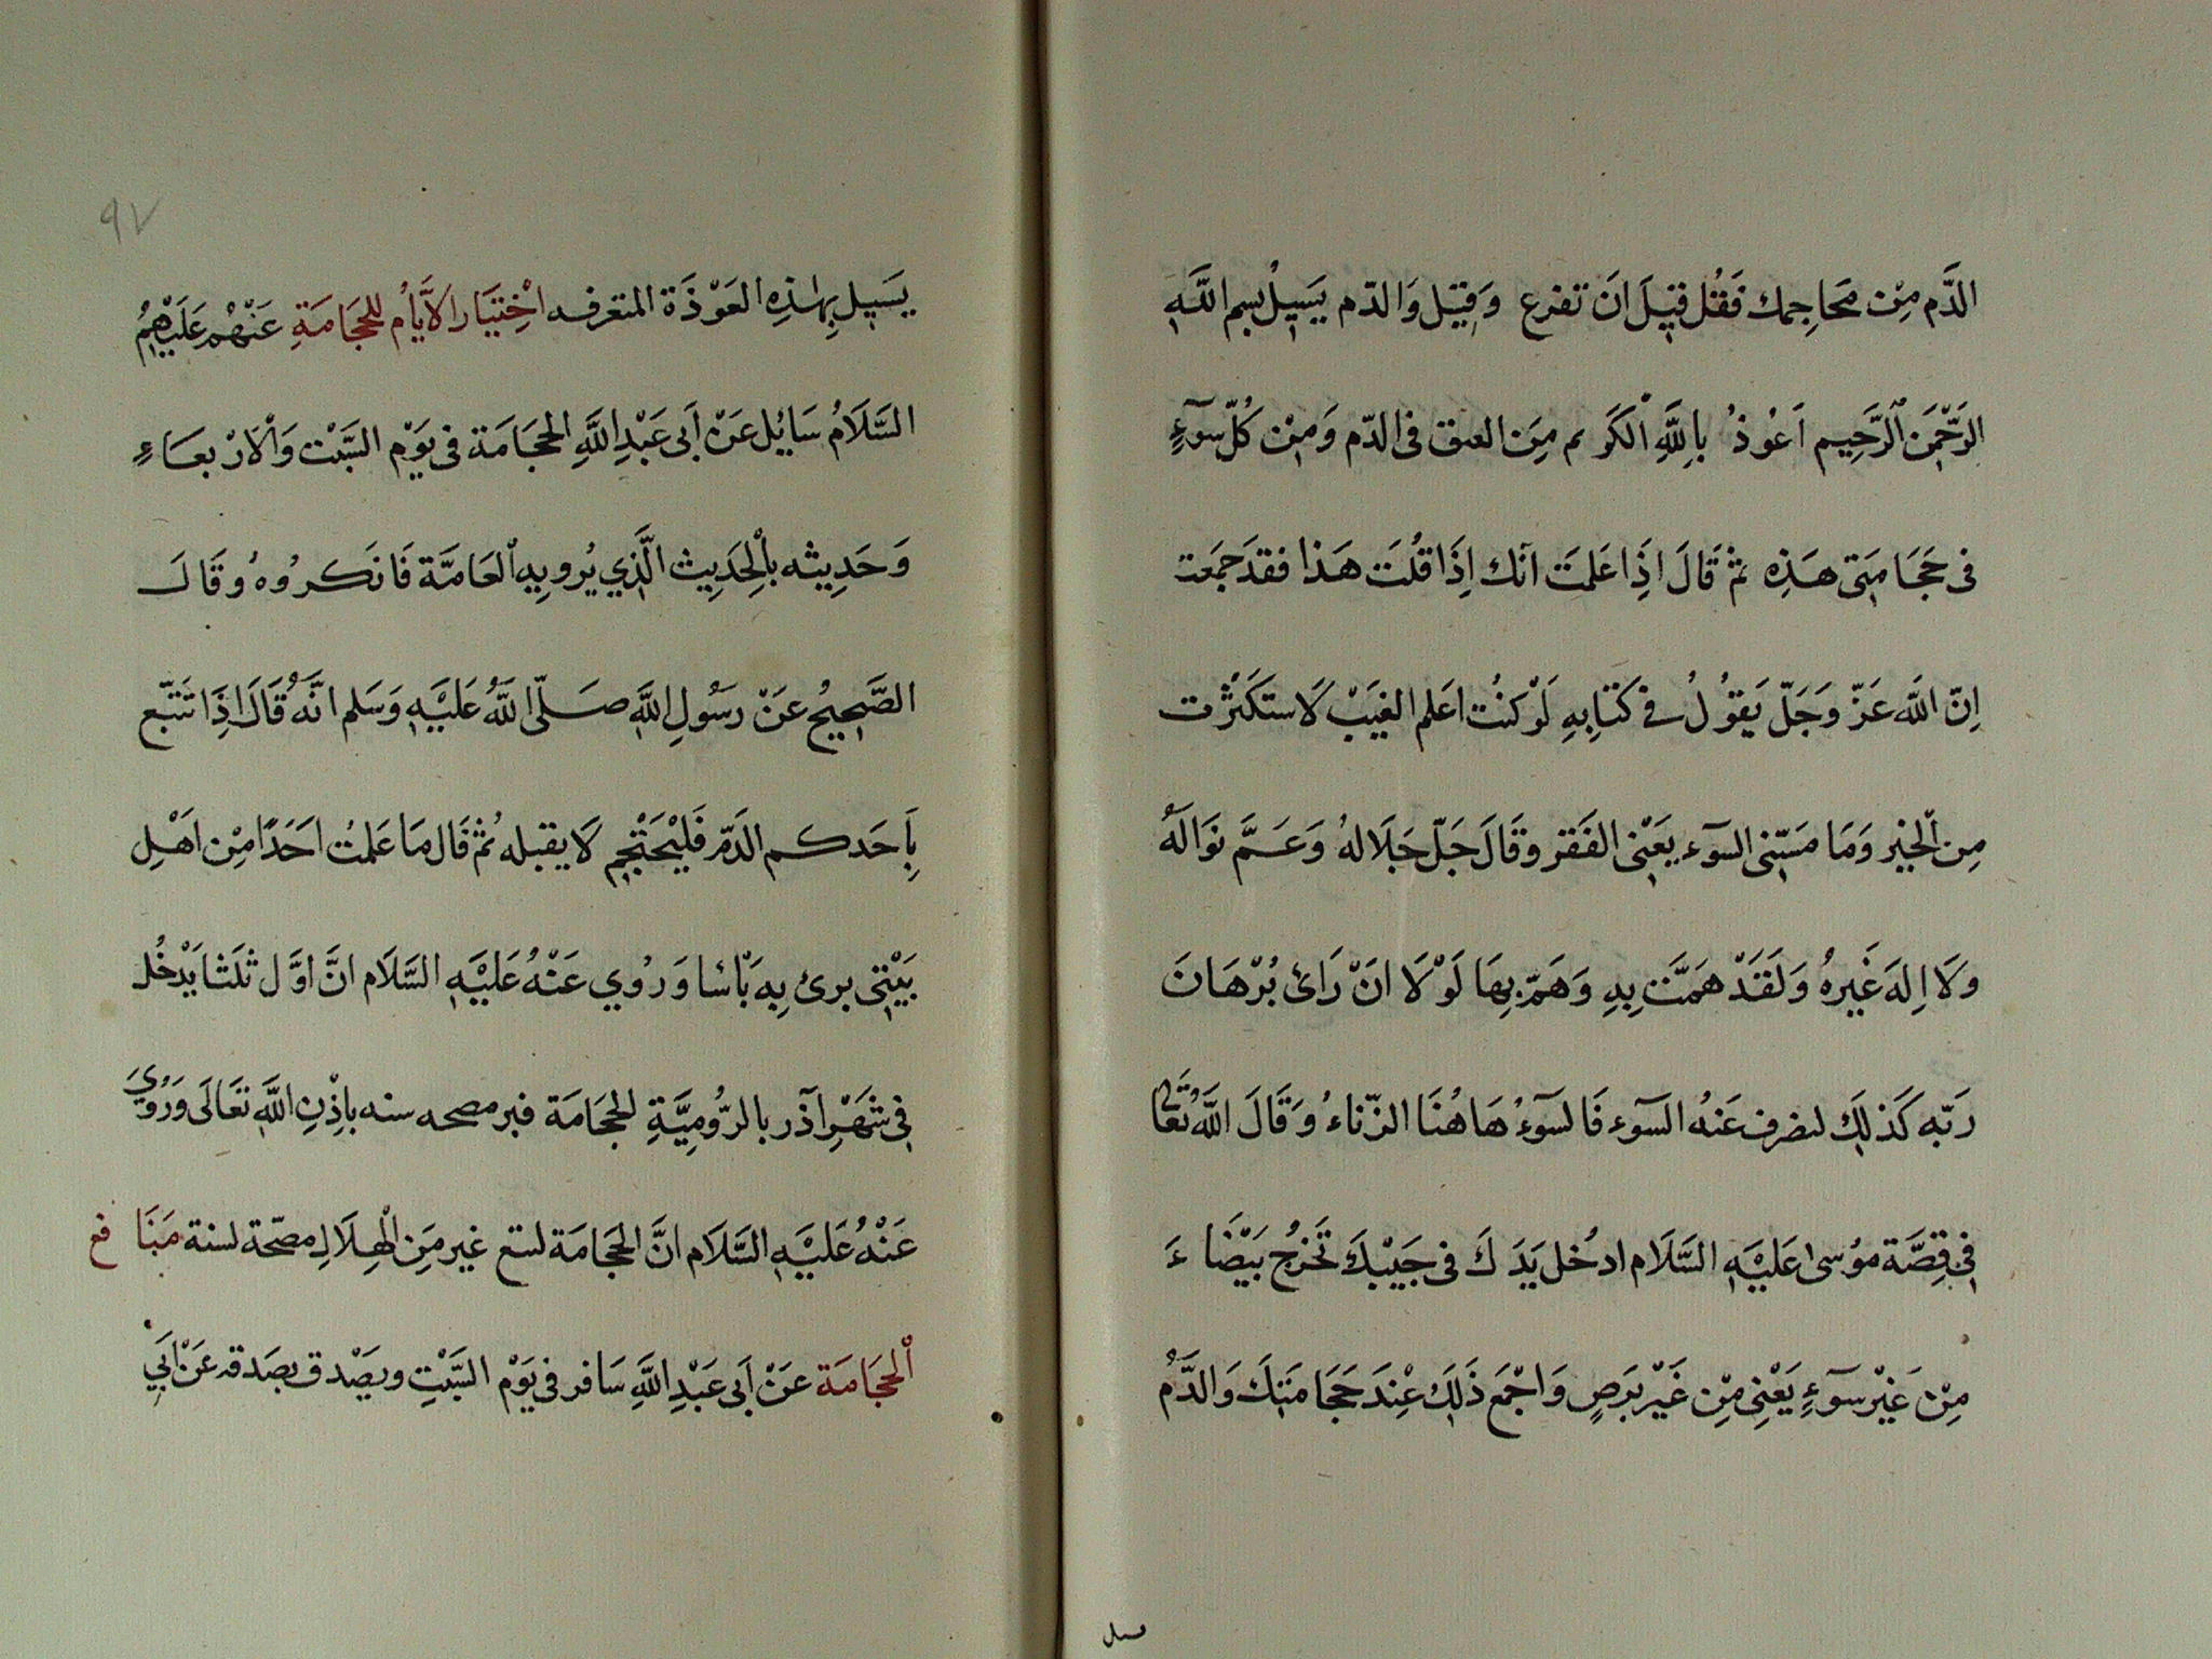 الدَّم مِنْ مَحَاجِمك فَقُل قَبِلَ انَ تفرع وَقِيَل وَالدّم يَسِيلُ بسِم اللَّهِ
الرَّحْمَن الرَّحِيم اَعُوذُ بِاللَّهِ الْكَرِيم مِنَ العىق فى الدّم وَمِنْ كُلّ سوٓءٍ
فى حَجَامَتى هَذِهِ ثمْ قَالَ اذِا عَلمتَ آنك اِذَا قُلتَ هَذا فقدَ جمَعت
اِنّ اللَّه عَزّ وَجَلّ يَقوُلُ فے كتَابِهِ لَوْ كنتُ اعَلم الغيَبْ لَاستكَثرَت
مِن الْخَير وَمَا مَسّنى السوٓء يعَنْى الفَقر وقَالَ جَلّ جَلَالهُ وَعَمَّ نوَالَهُ
وَلَا اِلهَ غَيرهُ وَلَقَدْ هَمَّت بِهِ وَهَمّ بِهَا لَوْلَا انَ رَائ بُرْهَانَ
رَبّه كَذلِكَ لنصَرف عَنهُ السوٓء فَالسوٓءُ هَاهُنَا الزّناءُ وَقَالَ اللَّهُ تَعَالَى
فِى قِصَّة موُسى عَليَهِ السَّلَام ادخُل يَدَكَ فى جَيْبكَ تَخرُجُ بَيْضَاءَ
مِنْ غَيْر سوٓءٍ يَعْنِى مِن غَيْر بَرَصٍ وَاجْمَع ذَلِكَ عِنْدَ حَجَامَتِكَ وَالدَّمُ
ىسىل
٩٧
يَسِيل بِهٰذِهِ العَوْذَة المتعرفه اخْتِيَار الاَيَّامُ للحِجَامَةِ عَنْهُمْ عَلَيْهِمُ
السَّلَامُ سَايُل عَنْ اَبى عَبْدِ اللَّهِ الحجَامَة فى يَوْم السَّبْت وَالْارْبعَاءِ
وَحَدِيثه بالْحَدِيث الَّذِي يُرويهِ العَامَّة فَانَكرُوهُ وقَالَ
الصَّحِيحُ عَنْ رَسُولِ اللَّهِ صَلّى اللَّهُ عَليَهِ وَسَلم انَّهُ قَالَ اذِا تَبَّع
بِاَحَدكم الدَّم فَليْحَتْجِم لَا يقبله ثمُ قَال مَا عَلمتُ احَدًا مِن اهَلِ
بَيْتِى برئ بِه بَأسا وَرُوي عَنْهُ عَليَهِ السَّلَام انَّ اوَّل ثلَثَا يَدْخُل
فِى شَهْرِ آذَر بالرُّومِيَّةِ الحِجَامَة فبر مصحه سنه باِذْنِ اللَّهِ تعَالَى وَرُوِيَ
عَنْهُ عَليَهِ السَّلَام انَّ الحِجَامَة لتسع غير مِنَ الْهِلَالِ مصَحّة لسنة مَنَافع
اْلحِجَامَة عَنْ اَبى عَبْدِ اللَّهِ سَافر فى يَوْم السَّبْتِ ويصَدق بصَدقه عَنْ اَبِي